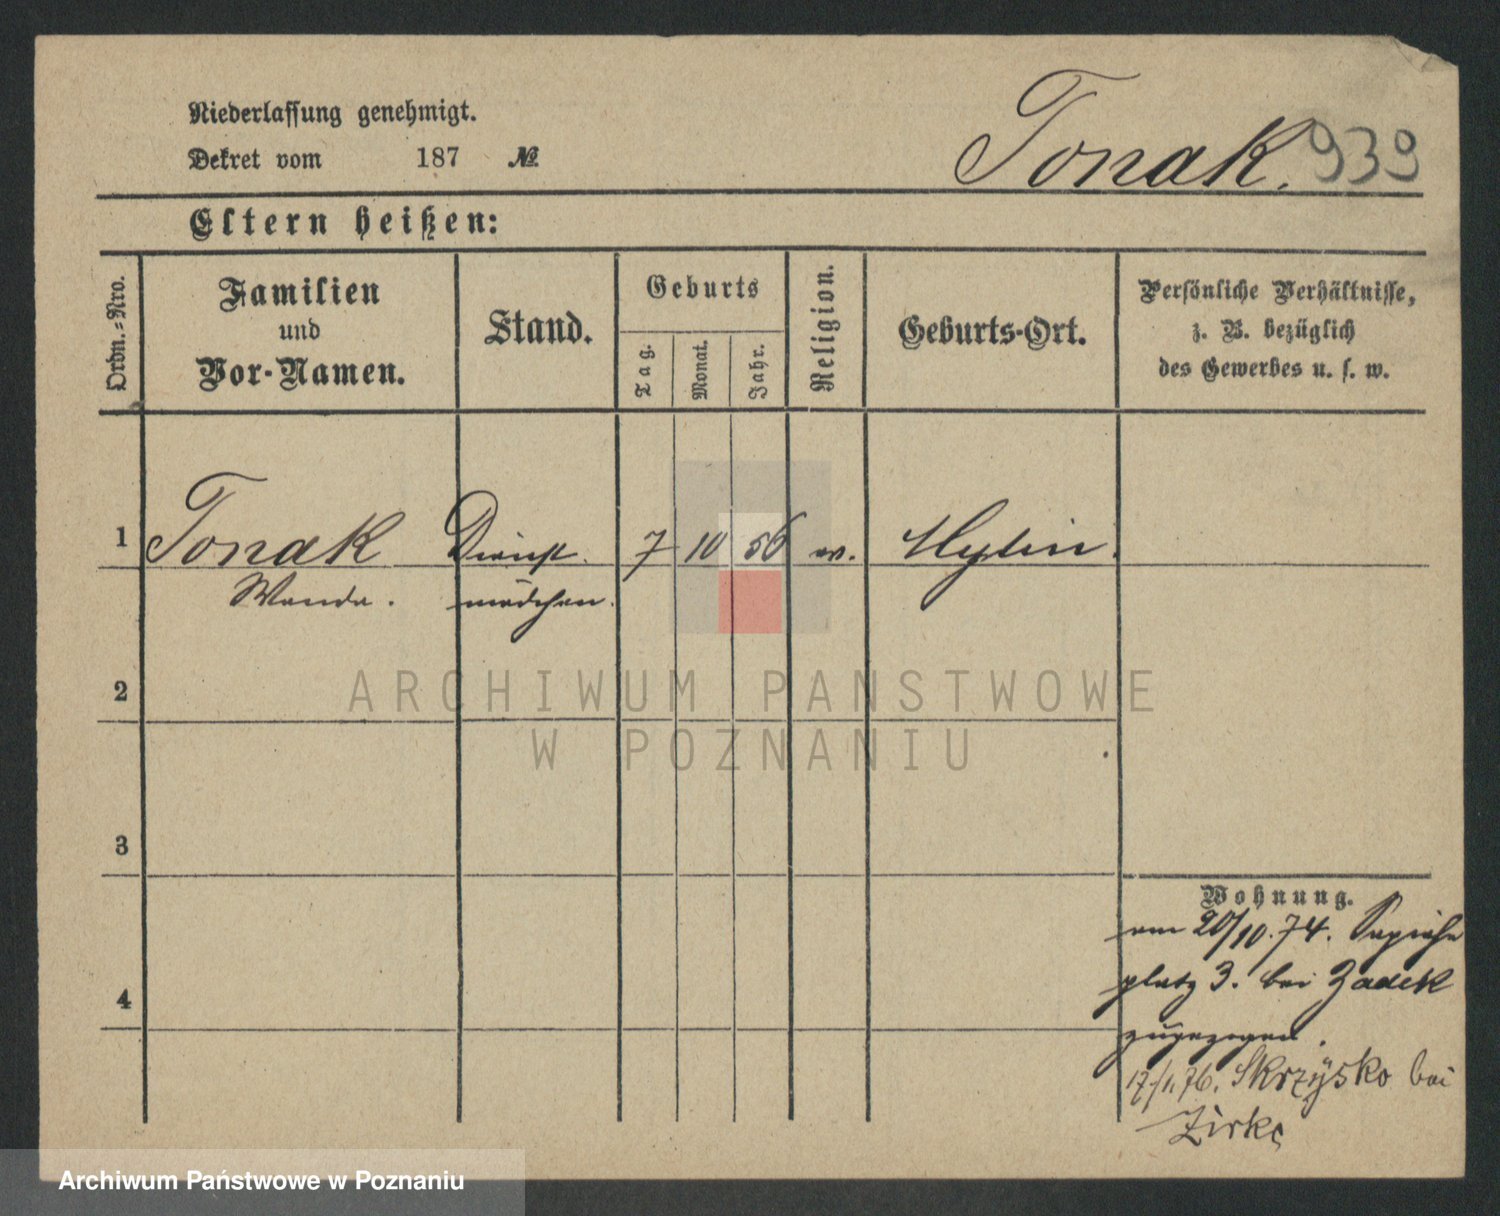 Niederlassung genehmigt.
Dekret vom 187 №
Tonak. 939
Eltern heißen:
Ordn.=Nro.
Familien und Vor-Namen.
Stand.
Geburts
Tag. Monat. Jahr.
Religion.
Geburts-Ort.
Persönliche Verhältnisse,
z. B. bezüglich
des Gewerbes u. s. w.
1 Tonak Dienst. 7 10 56
Wanda. mädchen.
2
3
4
Wohnung.
am 20/10.74. Sapieha
platz 3. bei Zadek
zugezogen.
17/1.76. Skrzysko bei
Zirke
ARCHIWUM PAŃSTWOWE
W POZNANIU
Archiwum Państwowe w Poznaniu